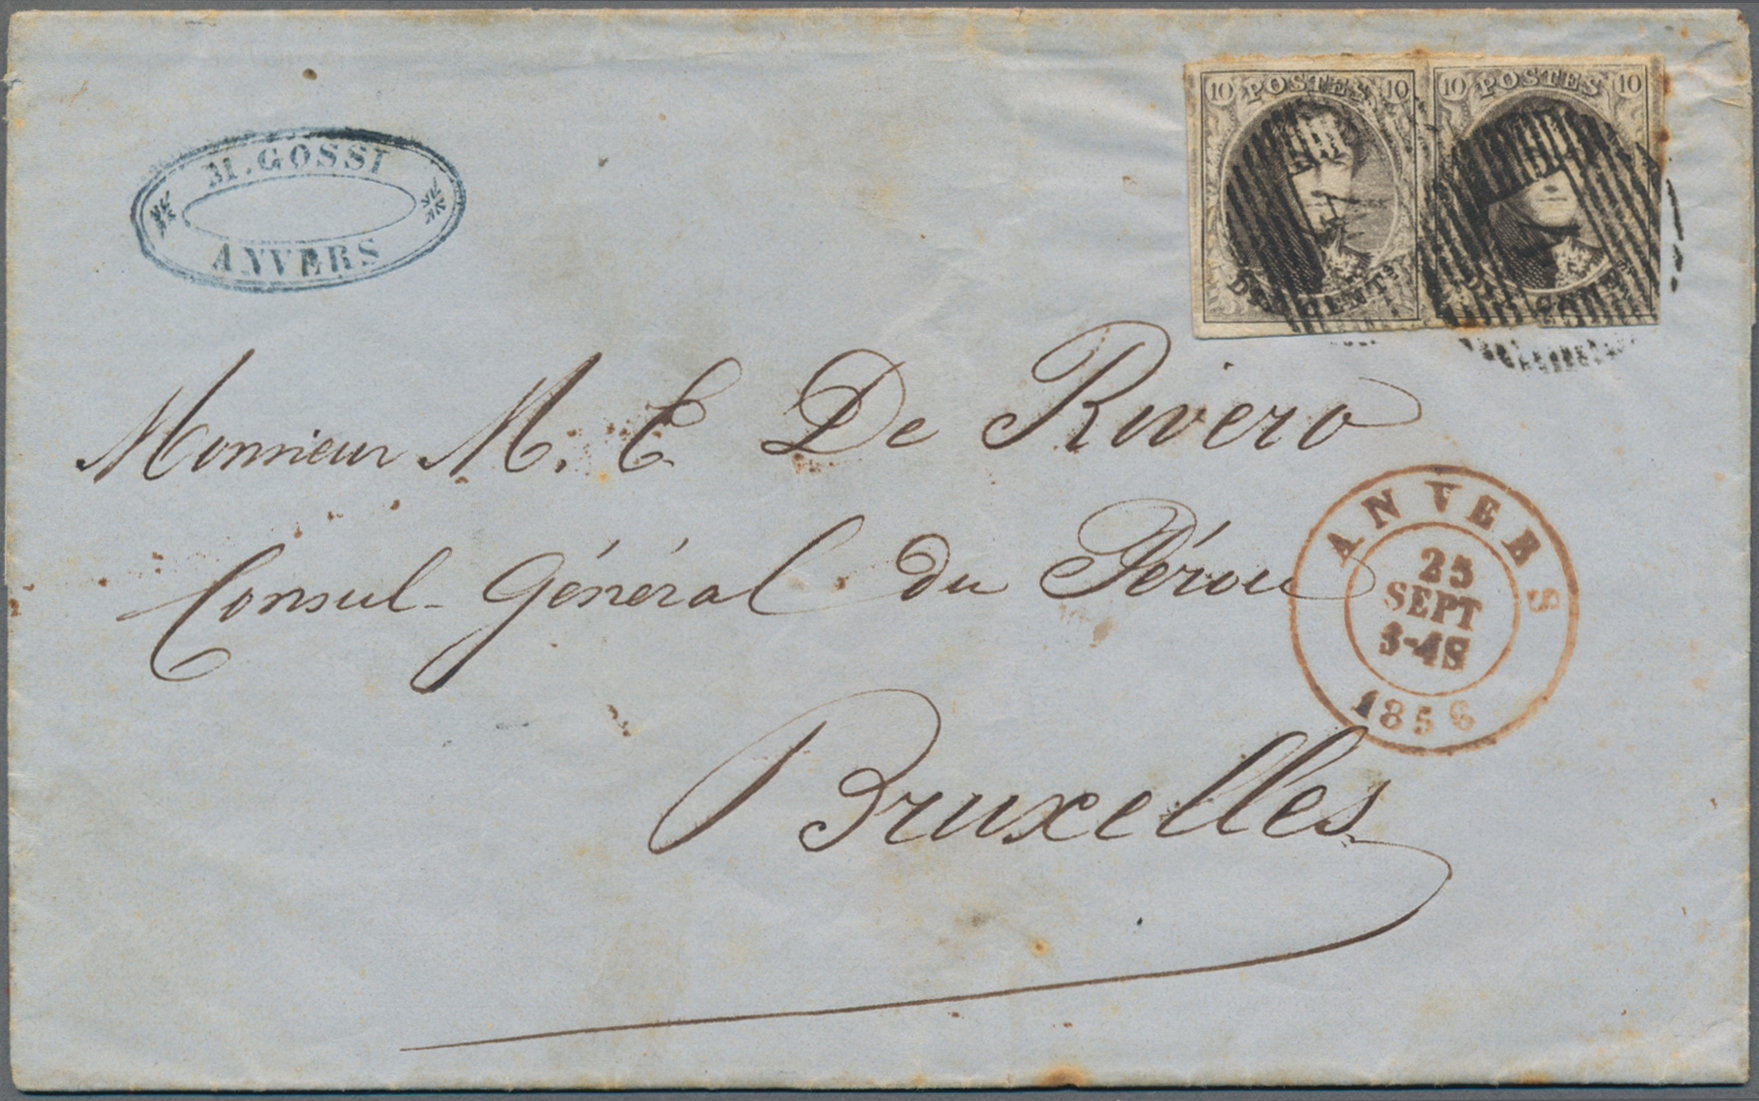 M. GOSSI
ANVERS
10 POSTES 10
10 POSTES 10
Monsieur M. E De Rivero
Consul Général du Pérou
Bruxelles
ANVERS
25
SEPT
1856